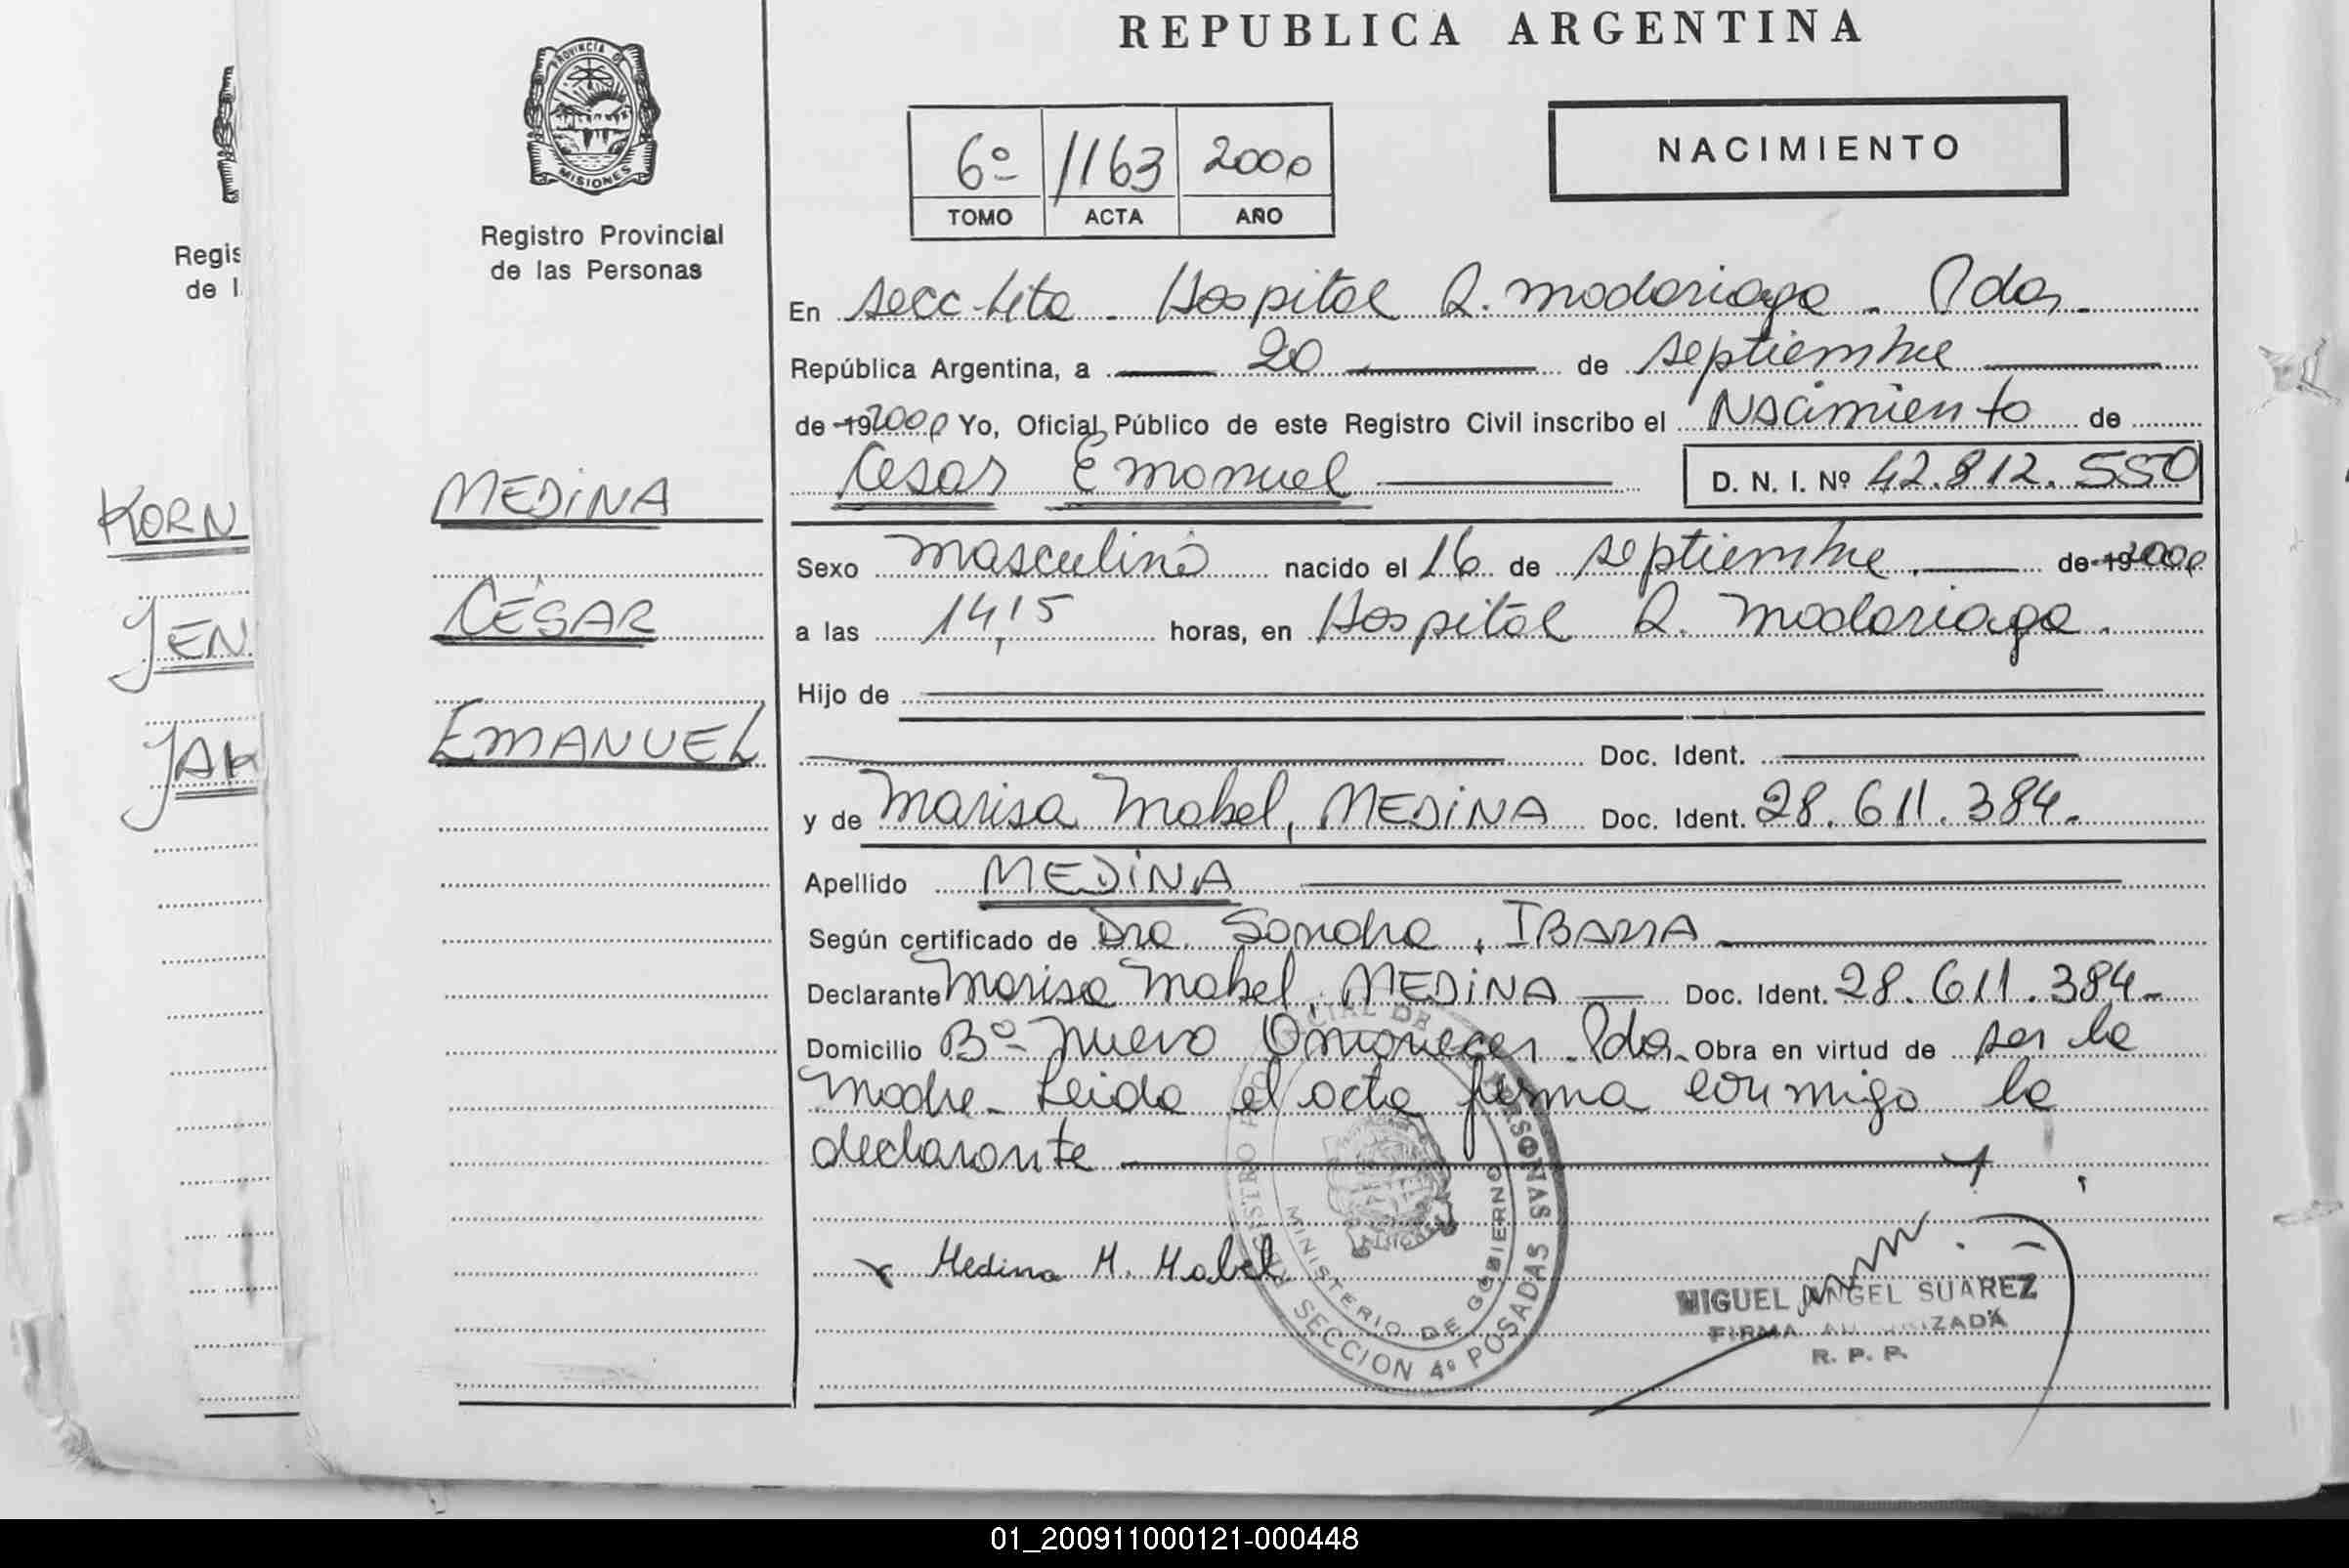 REPUBLICA ARGENTINA
PROVINCIA DE
MISIONES
Registro Provincial
de las Personas
6º 1163 2000
TOMO ACTA AÑO
NACIMIENTO
Regis
de l
En secc 4ta. Hospital R. Madariaga. Pdas.
República Argentina, a 20 de septiembre
de 19 2000 Yo, Oficial Público de este Registro Civil inscribo el Nacimiento de
Cesar Emanuel D. N. I. Nº 42.812.550
KORN
JEN
JAK
MEDINA
CÉSAR
EMANUEL
Sexo masculino nacido el 16 de septiembre de 19 2000
a las 14,15 horas, en Hospital R. Madariaga.
Hijo de
Doc. Ident.
y de Marisa Mabel, MEDINA Doc. Ident. 28.611.384.
Apellido MEDINA
Según certificado de Dra. Sandra, IBARRA
Declarante Marisa Mabel, MEDINA Doc. Ident. 28.611.384
Domicilio Bº Nuevo Amanecer. Pdas. Obra en virtud de ser la
madre. Leida el acta firma conmigo la
declarante
Medina M. Mabel
REGISTRO PROVINCIAL DE LAS PERSONAS
MINISTERIO DE GOBIERNO
SECCION 4º POSADAS
MIGUEL ANGEL SUAREZ
FIRMA AUTORIZADA
R. P. P.
01_200911000121-000448